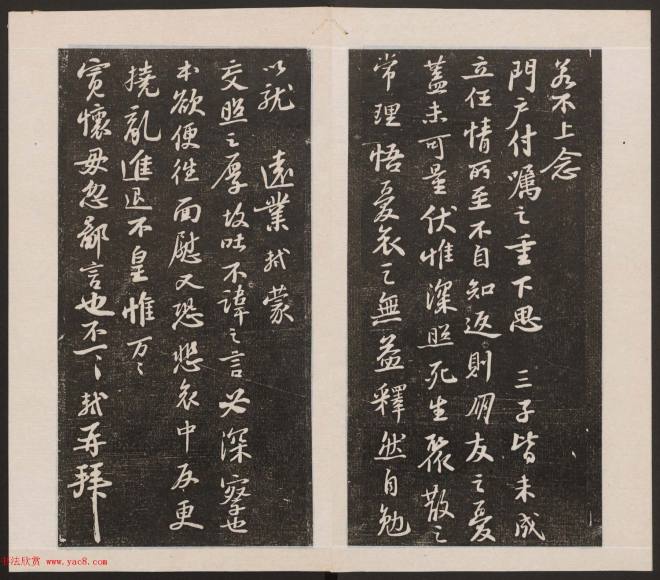 若不上念
門户付囑之重下思 三子皆未成
立任情所至不自知返則朋友之憂
蓋未可量伏惟深照死生聚散之
常理悟憂哀之無益釋然自勉
以就 遠業軾蒙
交照之厚故吐不諱之言必深察也
本欲便往面慰又恐悲哀中反更
撓亂進退不皇惟万〻
寬懷毋忽鄙言也不一〻軾再拜
书法欣赏 www.yac8.com